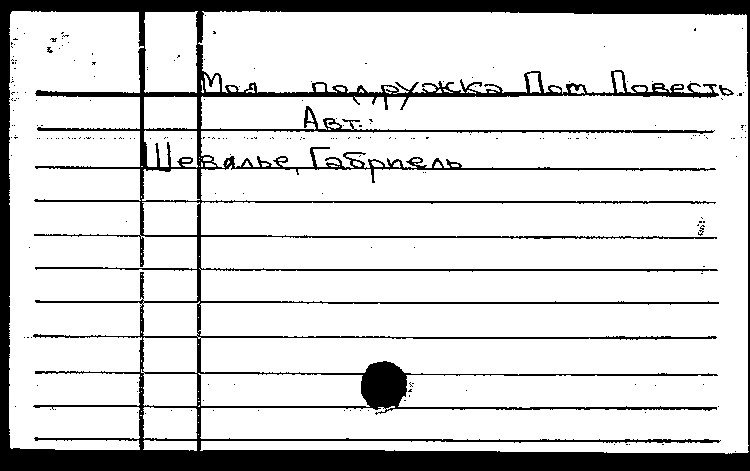 Моя подружка Пом. Повесть.
Авт.:
Шевалье, Габриель